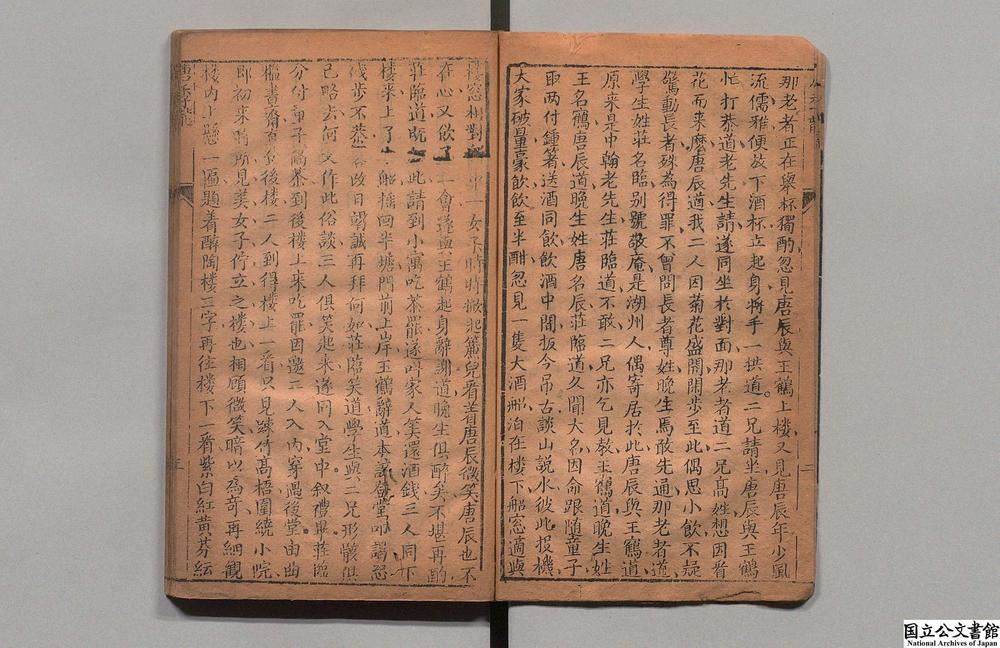 那老者正在舉杯獨酌忽見唐辰與王鶴上樓又見唐辰年少風
流儒雅便放下酒杯立起身將手一拱道二兄請坐唐辰與王鶴
忙打恭道老先生請遂同坐於對面那老者道二兄髙姓想因看
花而来麽唐辰道我二人因菊花盛開閒步至此偶思小飲不疑
驚動長者殊為得罪不曾問長者尊姓晚生焉敢先通那老者道
學生姓莊名臨别號敬庵是湖州人偶寄居於此唐辰與王鶴道
原来是中翰老先生莊臨道不敢二兄亦乞見教王鶴道晚生姓
王名鶴唐辰道晚生姓唐名辰莊臨道久聞大名因命跟随童子
取两付鍾箸送酒同飲飲酒中間扳今吊古談山說水彼此投機
大家破量豪飲飲至半酣忽見一隻大酒船泊在樓下船窓適與
樓窓相對 坐一女子時時掀起簾兒看着唐辰微笑唐辰也不
在心又飲了 一會遂與王鶴起身辭謝道晚生俱醉矣不堪再酌
莊臨道既 此請到小寓吃茶罷遂叫家人筭還酒錢三人同下
樓来上了 船摇回半塘門前上岸王鶴辭道本該登堂叩謁恐
殘步不恭 改日竭誠再拜何如莊臨笑道學生與二兄形骸俱
已略去何 作此俗談三人俱笑起来遂同入堂中叙禮畢莊臨
分付童子 茶到後樓上来吃罷因邀二人入內穿過後堂由曲
檻畫齋 後樓二人到得樓上一看只見踈竹髙梧圍繞小院
即初来時所見美女子佇立之樓也相顧微笑暗以為奇再細觀
樓内上懸一匾題着醉陶樓三字再往樓下一看紫白紅黄芬紜
二
三
国立公文書館
National Archives of Japan